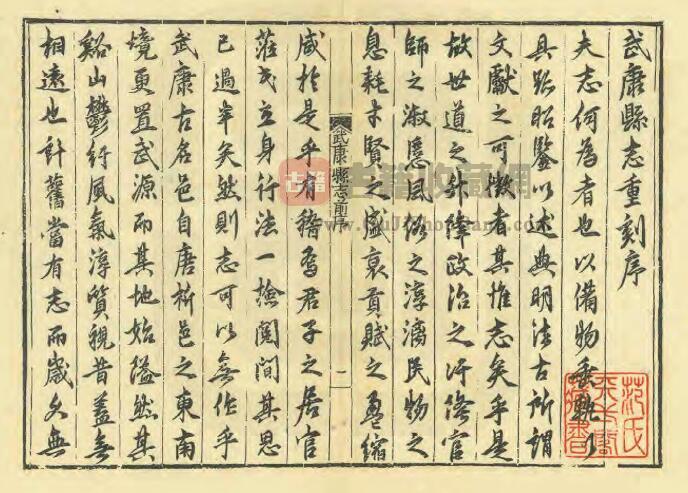 武康縣志重刻序
夫志何為者也以備物垂軌以
具跡昭鑒以述典明法古所謂
文獻之可徵者其惟志矣乎是
故世道之升降政治之汙隆官
師之淑慝風俗之淳漓民物之
息耗才賢之盛衰貢賦之盈縮
武康縣志前序
一
咸於是乎有稽焉君子之居官
蒞民立身行法一撿閱間其思
已過半矣然則志可以無作乎
武康古名邑自唐析邑之東南
境更置武源而其地始隘然其
谿山鬱紆風氣淳質視昔蓋無
相遠也計舊當有志而歲久無
古籍
古籍收藏網
范氏
天一閣
藏書